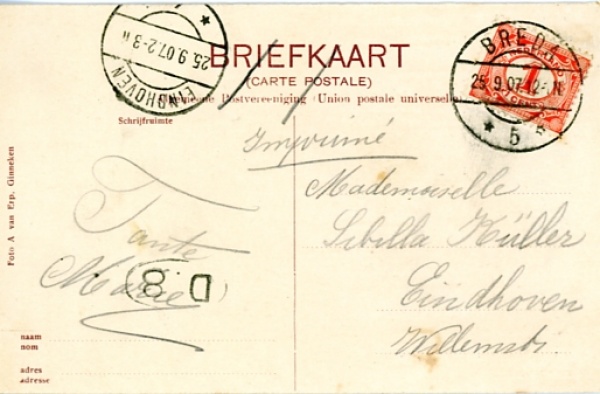 BRIEFKAART
(CARTE POSTALE)
Algemeene Postvereeniging (Union postale universelle)
Schrijfruimte
EINDHOVEN
25.9.07.2-3N
BREDA
25.9.07.12-1N
* 5 *
1
Imprimé
Mademoiselle
Sibilla Küller
Eindhoven
Willemstr.
Tante
Marie
D 8
naam
nom
adres
adresse
Foto A van Erp, Ginneken